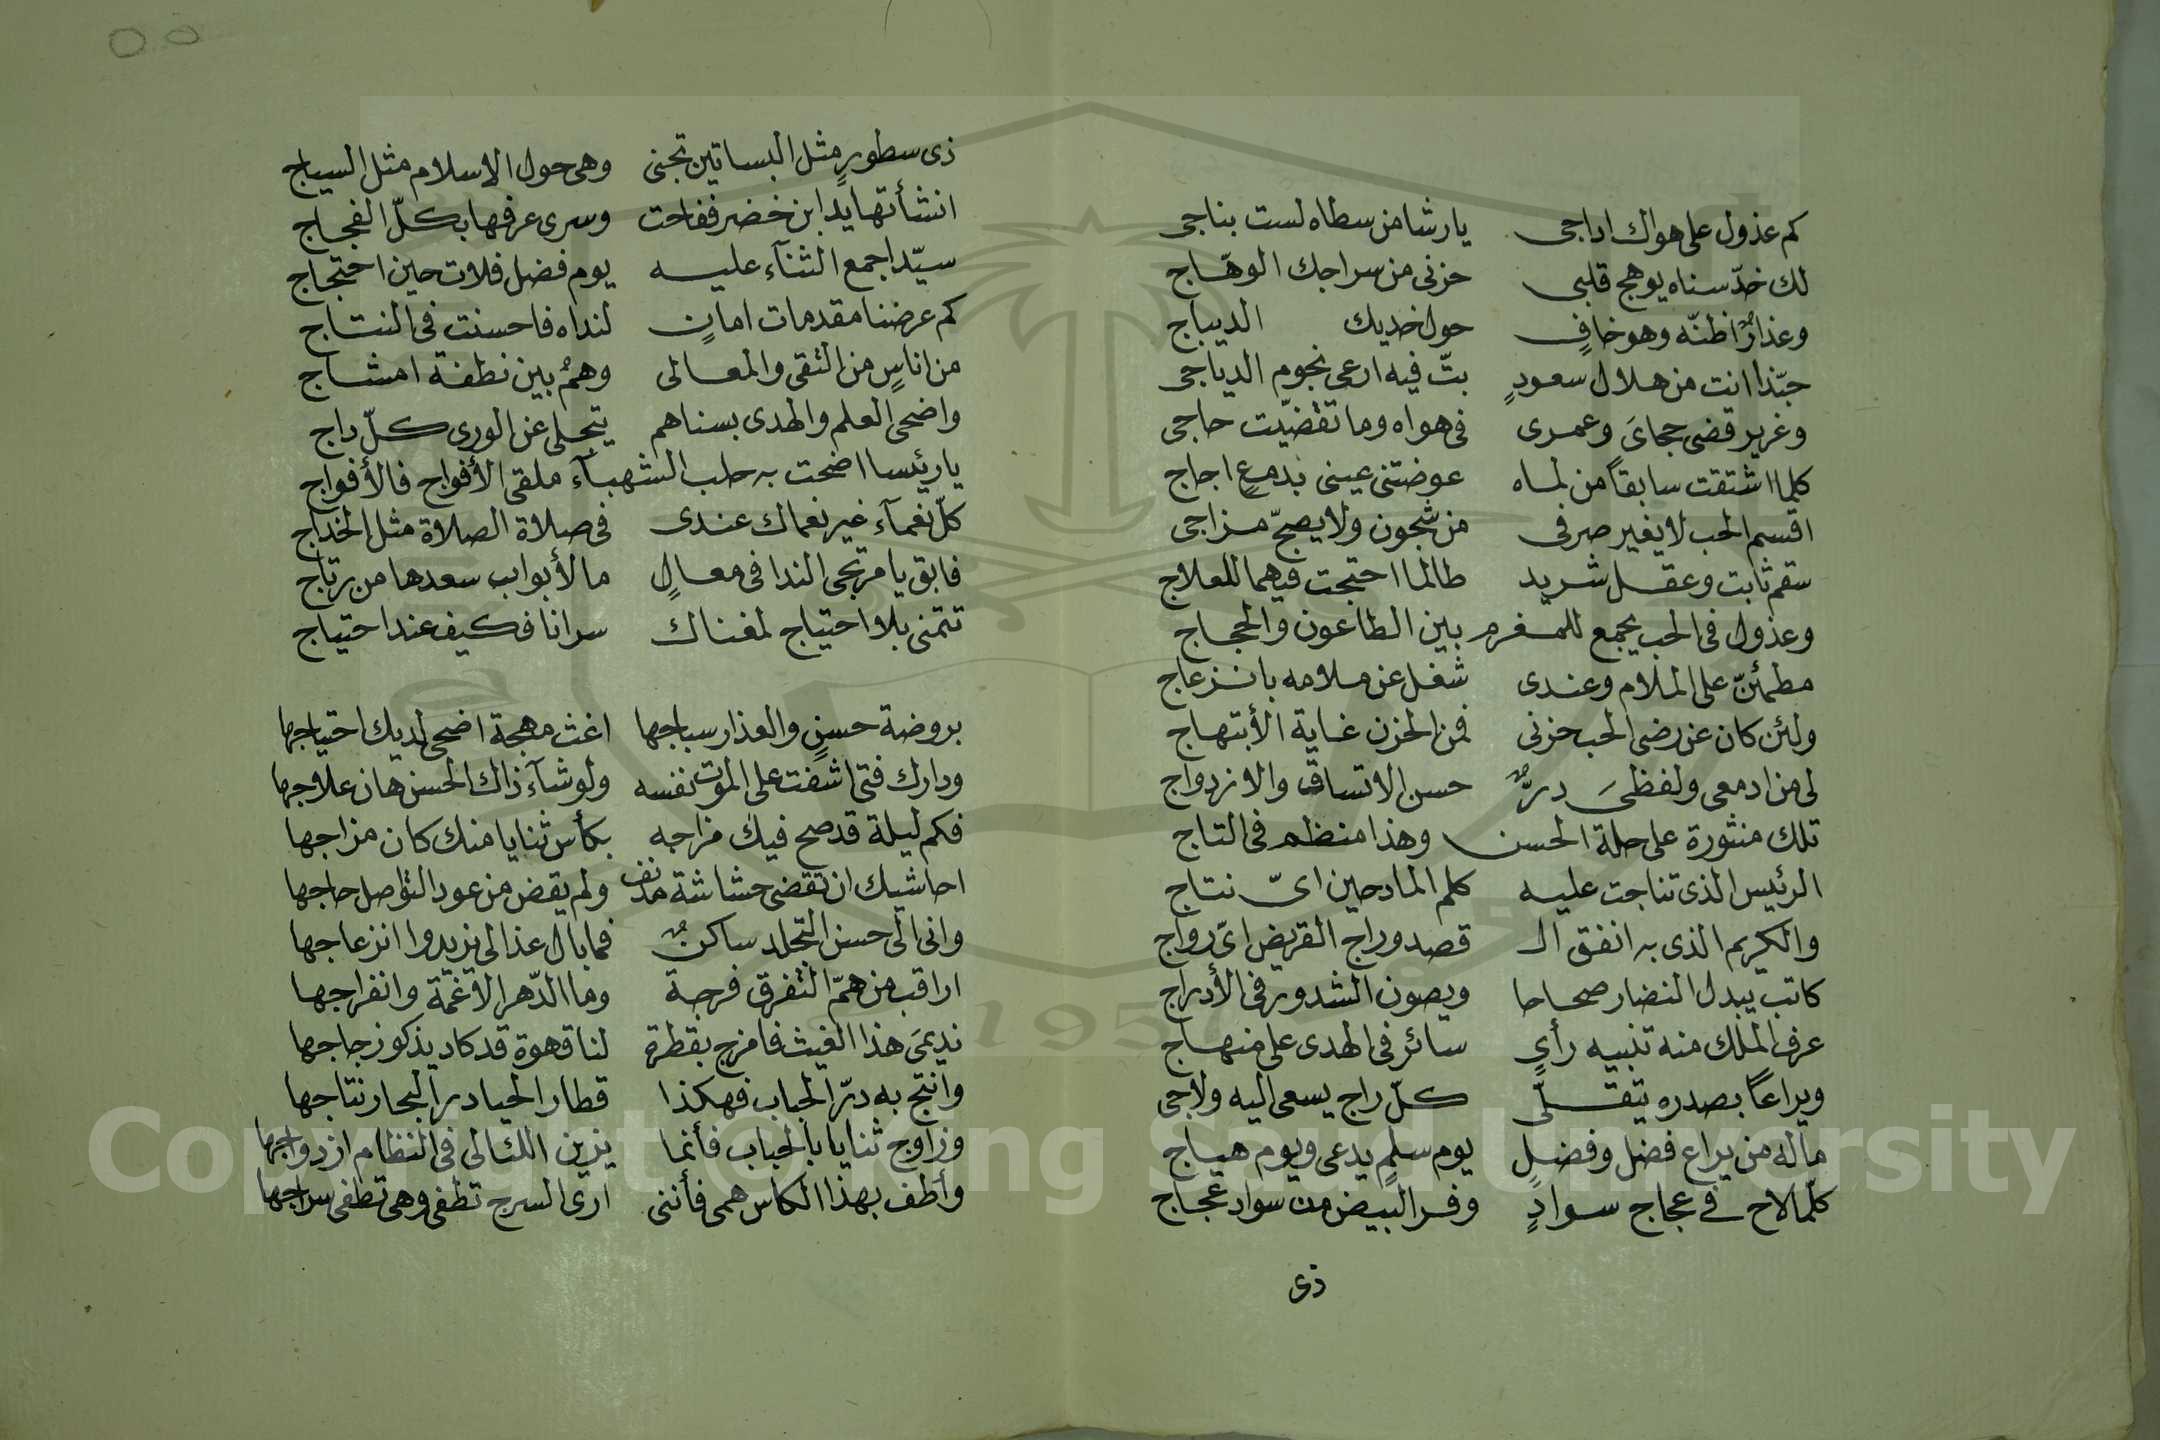 كم عذول على هواك اداجى يا رشا من سطاه لست بناجى
لك خدّ سناه يوهج قلبى حزنى من سراجك الوهّاج
وعذارٌ اظنّه وهو خافٍ حول خديك الديباج
حبّذا انت من هلال سعودٍ بتّ فيه ارعى نجوم الدياجى
وغرير قضى حجاىَ وعمرى فى هواه وما تقضيّت حاجى
كلما اشتقت سابقاً من لماه عوضتنى عينى بدمعٍ اجاج
اقسم الحب لا يغير صرفى من شجون ولا يصحّ مزاجى
سقم ثابت وعقل شريد طالما احتجت فيهما للعلاج
وعذول فى الحب يجمع للمغرم بين الطاعون والحجاج
مطمئنّ على الملام وعندى شغل عن ملامه بانزعاج
ولئن كان عن رضى الحب حزنى فمن الحزن غاية الأبتهاج
لى من ادمعى ولفظىَ درٌّ حسن الاتساق والازدواج
تلك منثورة على حلة الحسن وهذا منظم فى التاج
الرئيس الذى تناجت عليه كلم المادحين اىّ نتاج
والكريم الذى به انفق الـ قصد وراج القريض اىّ رواج
كاتب يبدل النضار صحاحا ويصون الشدور فى الأدراج
عرف الملك منه تنبيه رأىٍ سائر فى الهدى على منهاج
ويراعًا بصدره يتقلّى كلّ راج يسعى اليه ولاجى
ما له من يراع فضل وفضلٍ يوم سلمٍ يدعى ويوم هياج
كلّما لاح فى عجاج سوادٍ وفر البيض من سواد عجاج
ذى
ذى سطورٍ مثل البساتين تجنى وهى حول الاسلام مثل السياج
انشأتها يد ابن خضر ففاحت وسرى عرفها بكلّ الفجاج
سيّد اجمع الثنآء عليه يوم فضل فلات حين احتجاج
كم عرضنا مقدمات امانٍ لنداه فاحسنت فى النتاج
من اناسٍ من التقى والمعالى وهمُ بين نطفة امشاج
واضحى العلم والهدى بسناهم يتجلى عن الورى كلّ داج
يا رئيسا اضحت به حلب الشهبآء ملقى الأفواج فالأفواج
كلّ نغمآء غير نعماك عندى فى صلاة الصلاة مثل الخداج
فابق يا مرتجى الندا فى معالٍ ما لأبواب سعدها من رتاج
تتمنى بلا احتياج لمغناك سرانا فكيف عند احتياج
بروضة حسنٍ والعذار سياجها اغث مهجة اضحى لديك احتياجها
ودارك فتى اشفت على الموت نفسه ولو شآء ذاك الحسن هان علاجها
فكم ليلة قد صح فيك مزاجه بكأس ثنايا منك كان مزاجها
احاشيك ان تقضى حشاشة مدنف ولم يقض من عود التواصل حاجها
وانى الى حسن التجلد ساكنٌ فما بال عذالى نريدوا انزعاجها
اراقب من همّ التفرق فرجة وما الدّهر الا غمّة وانفراجها
نديمىَ هذا الغيث فامزج بقطرة لنا قهوة قد كاد يذكو زجاجها
وانتج به درّ الحباب فهكذا قطار الحيا در البحار نتاجها
وزاوج ثنايا بالحباب فأنما يزين اللئالى فى النظام ازدواجها
وأطف بهذا الكاس همى فأننى ارى السرج تطفى وهى تطفى سراجها